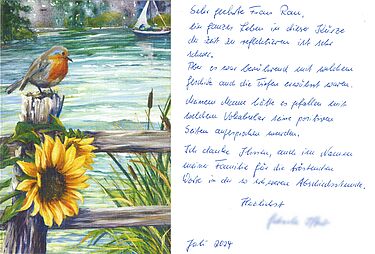 Sehr geehrte Frau Rau,
ein ganzes Leben in dieser Kürze
der Zeit zu reflektieren ist sehr
schwer.
Aber es war berührend mit welchem
Geschick auch die Tiefen erwähnt waren.
Meinem Manne hätte es gefallen mit
welchem Vokabular seine positiven
Seiten angesprochen wurden.
Ich danke Ihnen, auch im Namen
meiner Familie für die tröstenden
Worte in der so schweren Abschiedsstunde.
Herzlichst
Juli 2024